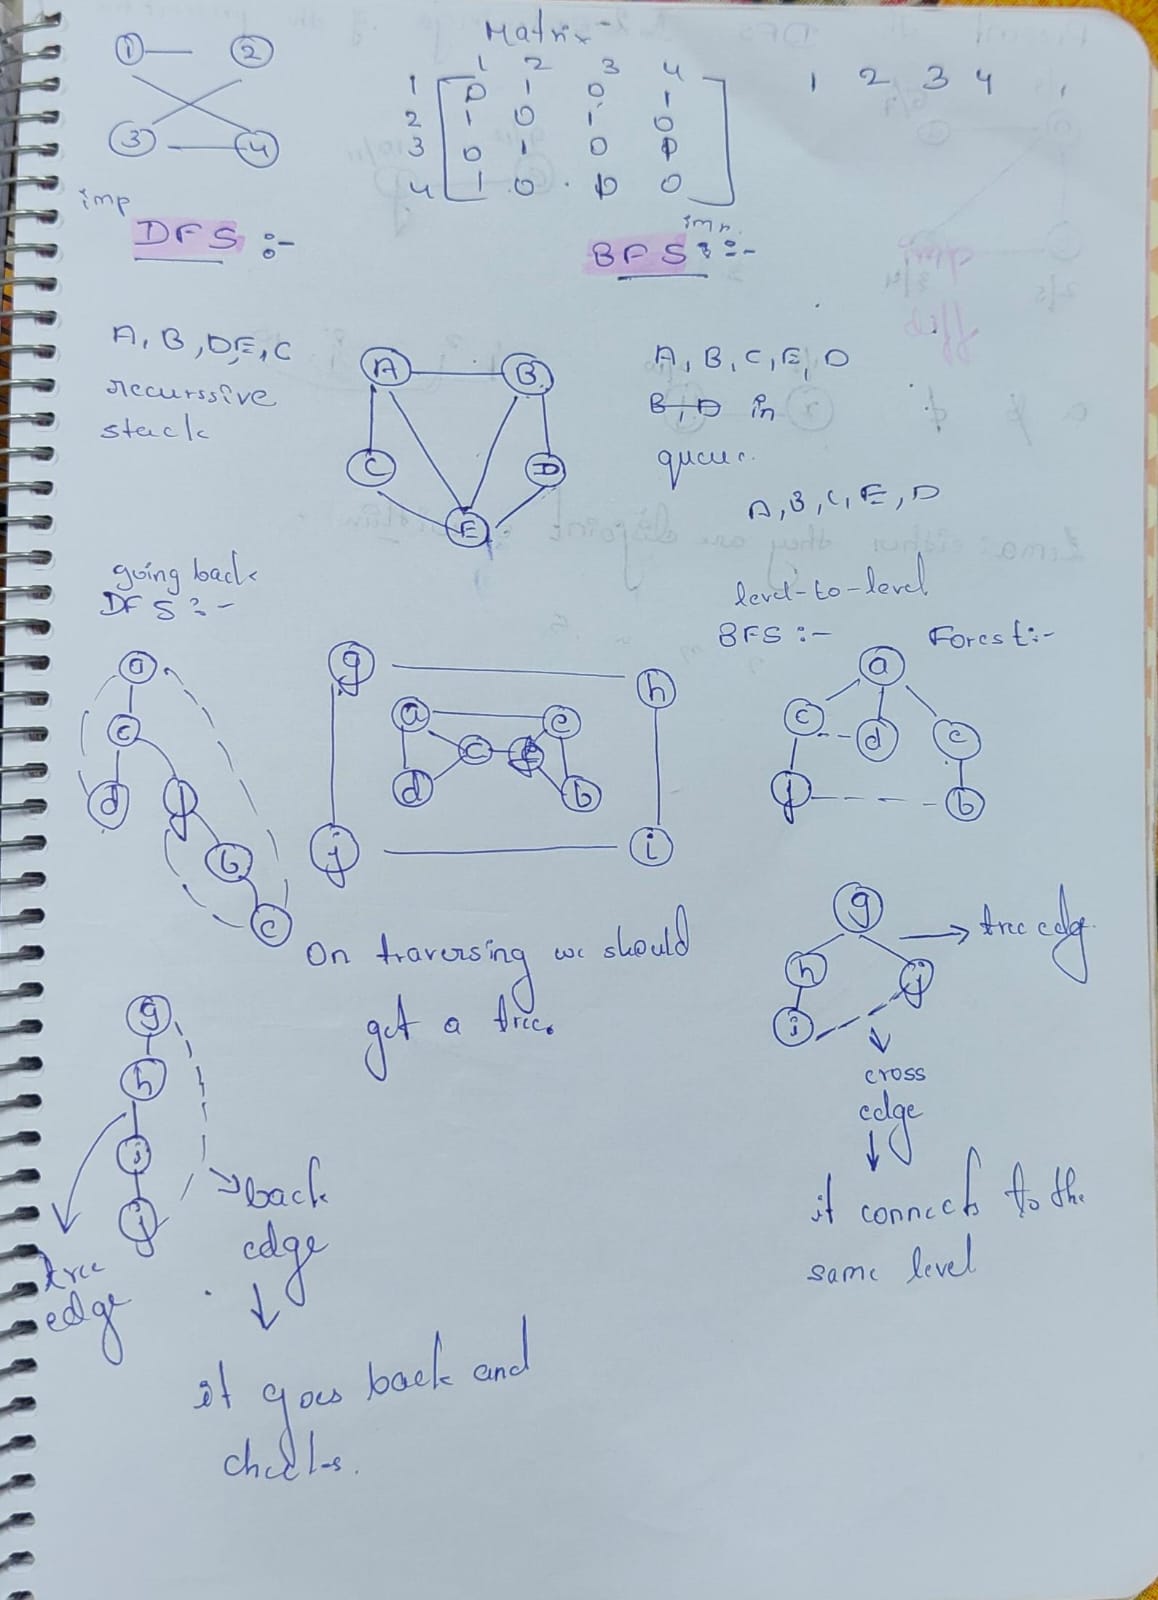 Matrix:-
1 2
3 4
1 2 3 4
1 0 1 0 1
2 1 0 1 0
3 0 1 0
4 1 0 0
1 2 3 4
imp
DFS :-
imp.
BFS :-
A, B, D, E, C
recurssive
stack
A B
C D
E
A, B, C, E, D
B, D in
queue.
A, B, C, E, D
going back
DFS :-
level-to-level
BFS :-
Forest:-
a
c
d f
b
e
g h
a e
c f
d b
j i
a
c d e
f b
On traversing we should
get a tree.
g
h
i
j
tree
edge
back
edge
it goes back and
checks.
g
h j
i
tree edge.
cross
edge
it connects to the
same level